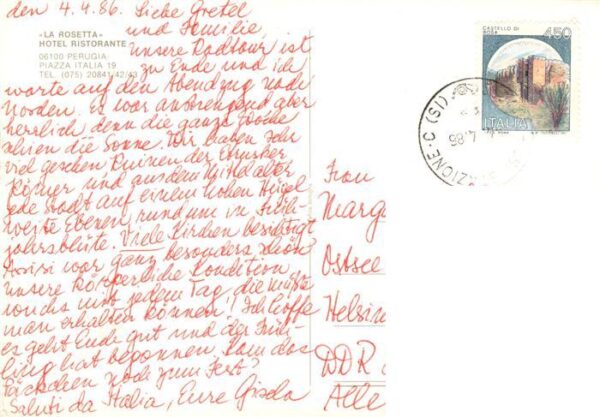 den 4.4.86. Liebe Gretel
und Familie,
«LA ROSETTA»
HOTEL RISTORANTE
06100 PERUGIA
PIAZZA ITALIA 19
TEL. (075) 20841/42/43
unsere Radtour ist
zu Ende und ich
warte auf den Abendzug nach
Norden. Es war anstrengend aber
herrlich denn die ganze Woche
schien die Sonne. Wir haben sehr
viel gesehen Ruinen der Etrusker
Römer und aus dem Mittelalter
jede Stadt auf einem hohen Hügel
weite Ebenen rundum in Früh-
jahrsblüte. Viele Kirchen besichtigt
Assisi war ganz besonders schön
unsere körperliche Kondition
wuchs mit jedem Tag, die müßte
man erhalten können! Ich hoffe
es geht Euch gut und der Früh-
ling hat begonnen. Kam das
Päckchen noch zum Fest?
Saluti da Italia, Eure Gisela
CASTELLO DI
BOSA
450
ITALIA
Frau
Marga
Ostsee
Helsin
DDR
Alle